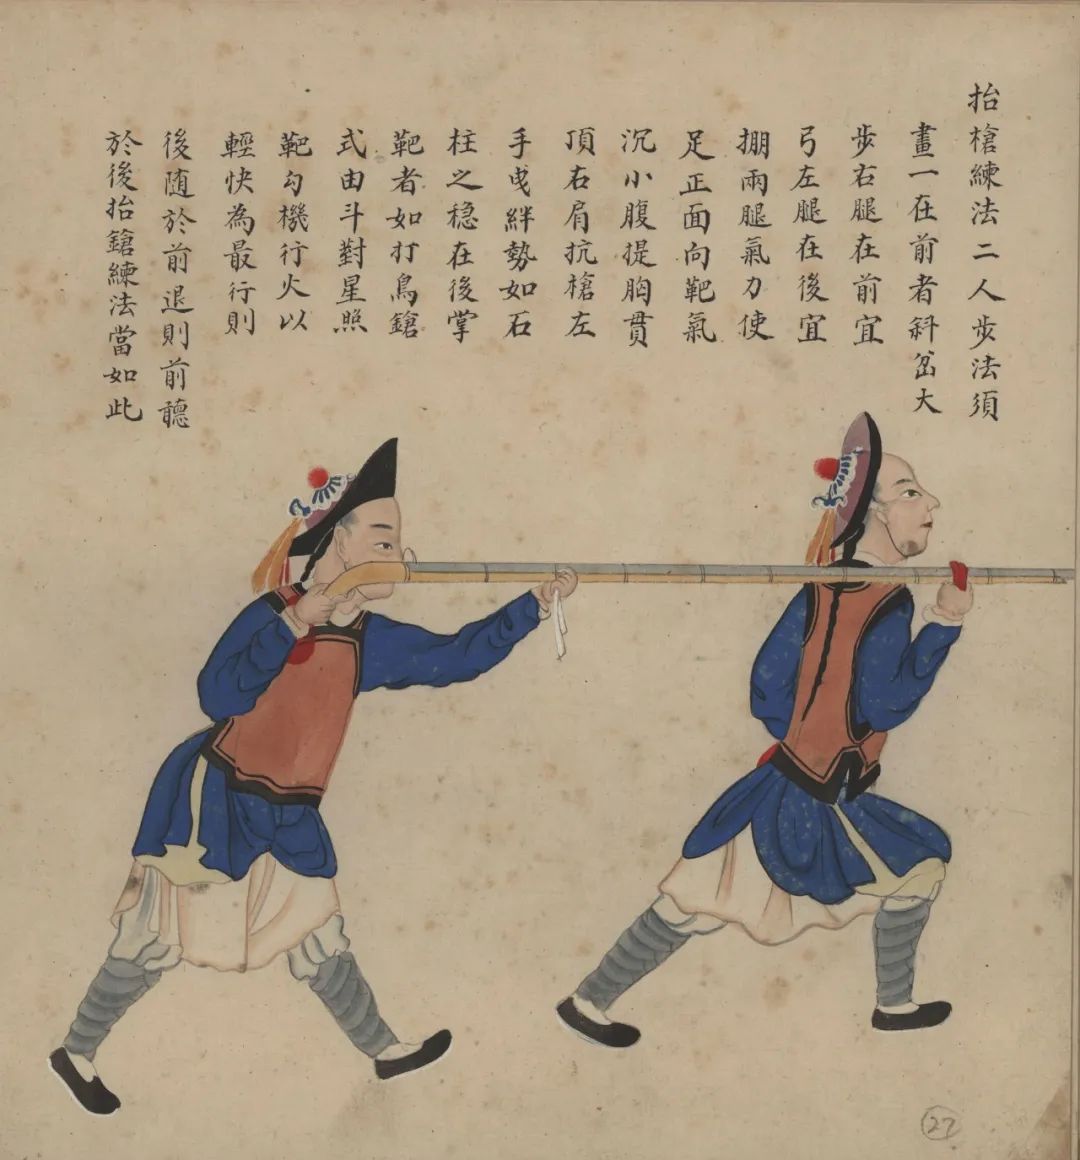 抬槍練法二人步法須
畫一在前者斜岔大
步右腿在前宜
弓左腿在後宜
掤兩腿氣力使
足正面向靶氣
沉小腹提胸貫
頂右肩抗槍左
手曵絆勢如石
柱之穏在後掌
靶者如打鳥鎗
式由斗對星照
靶勾機行火以
輕快為最行則
後随於前退則前聽
於後抬鎗練法當如此
27